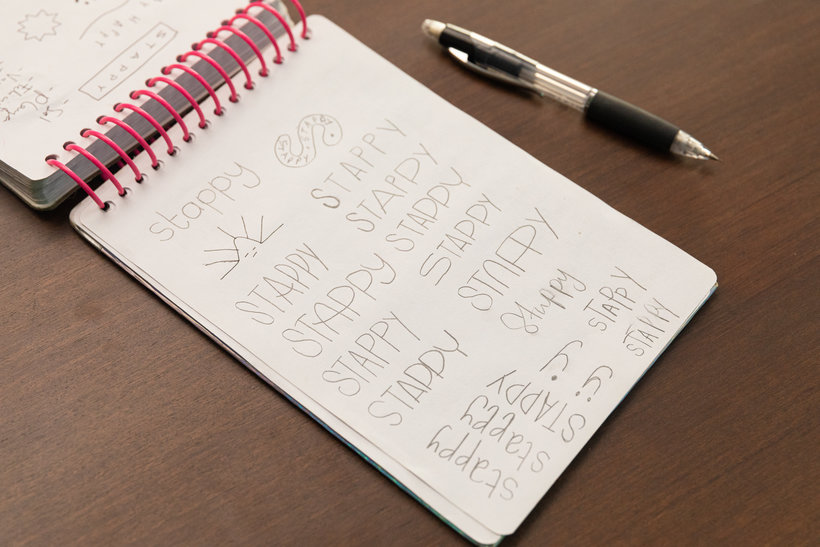 STAPPY
stappy
STAPPY STAPPY
STAPPY
STAPPY
STAPPY
STAPPY
STAPPY
STAPPY
STAPPY
STAPPY
STAPPY
Stappy
STAPPY
STAPPY
STAPPY
stappy
stappy